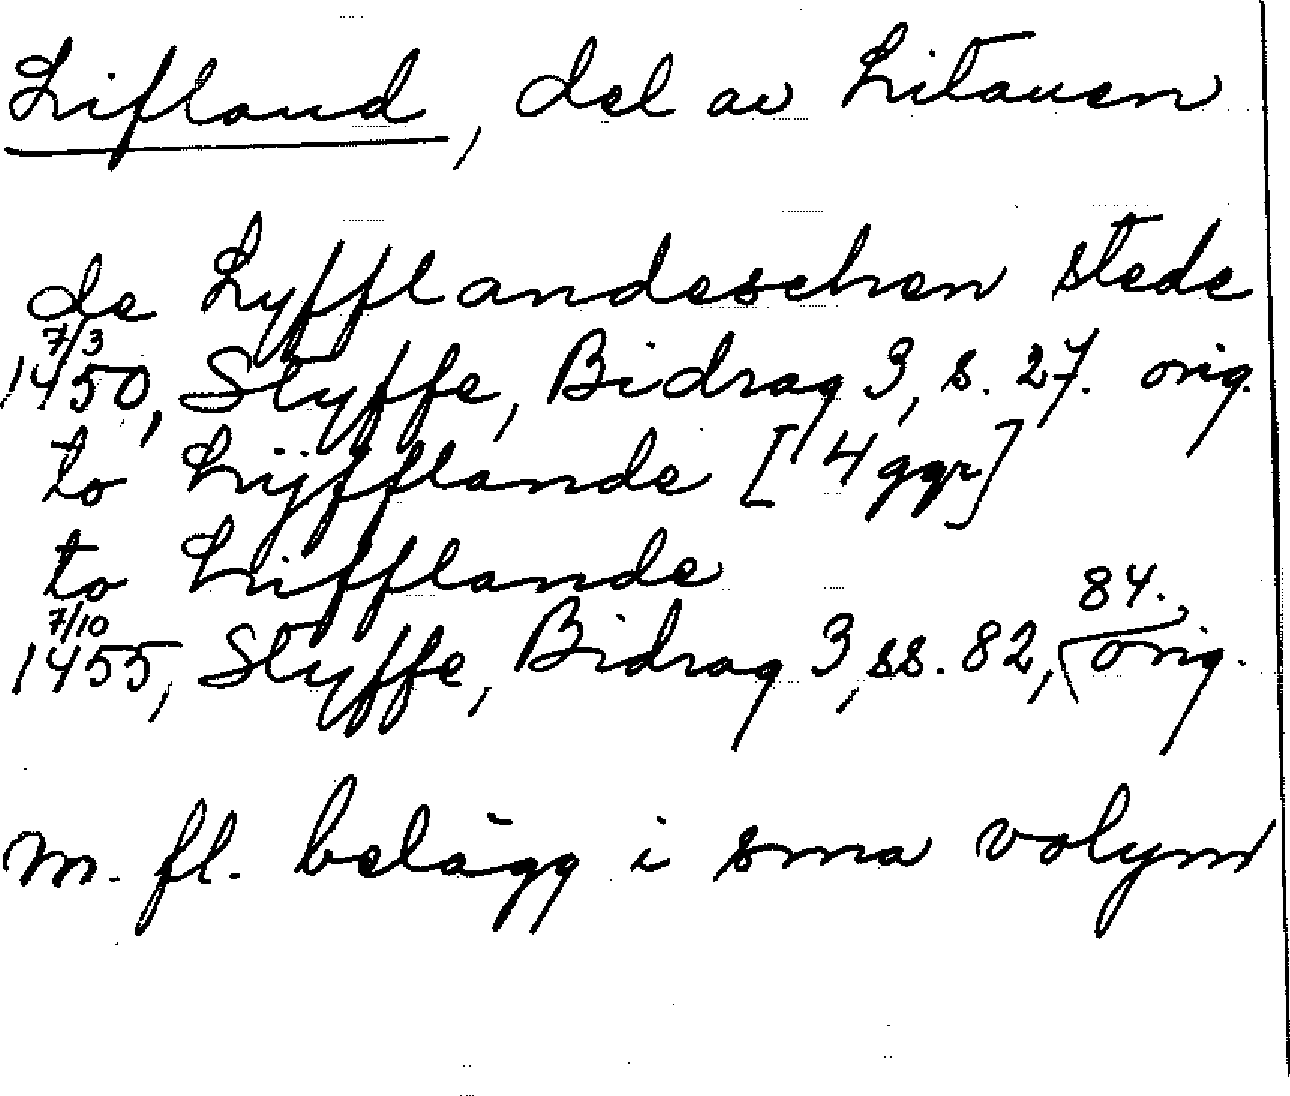 Lifland, del av Litauen
de Lyfflandeschen stede
7/3
1450, Styffe, Bidrag 3, s. 27. orig.
to Lijfflande [4 ggr]
to Lifflande
7/10
1455, Styffe, Bidrag 3, ss. 82, 84. orig.
m. fl. belägg i sma volym